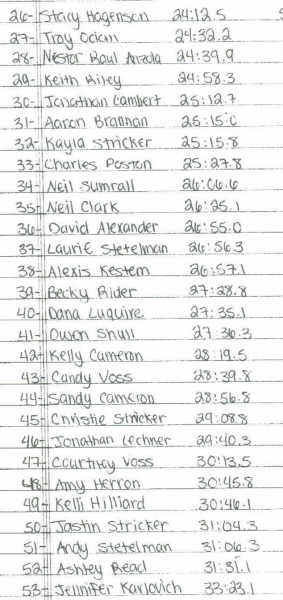 26- Stacy Hagenson 24:12.5
27- Troy Odom 24:32.2
28- Nestor Raul Arzola 24:39.9
29- Keith Riley 24:58.3
30- Jonathan Lambert 25:12.7
31- Aaron Brannan 25:15.0
32- Kayla Stricker 25:15.8
33- Charles Poston 25:27.8
34- Neil Sumrall 26:06.6
35- Neil Clark 26:25.1
36- David Alexander 26:55.0
37- Laurie Stetelman 26:56.3
38- Alexis Kestem 26:57.1
39- Becky Rider 27:28.8
40- Dana Luquire 27:35.1
41- Owen Shull 27:36.3
42- Kelly Cameron 28:19.5
43- Candy Voss 28:39.8
44- Sandy Cameron 28:56.8
45- Christie Stricker 29:08.8
46- Jonathan Lechner 29:40.3
47- Courtney Voss 30:13.5
48- Amy Herron 30:45.8
49- Kelli Hilliard 30:46.1
50- Justin Stricker 31:04.3
51- Andy Stetelman 31:06.3
52- Ashley Read 31:31.1
53- Jennifer Karlovich 33:23.1